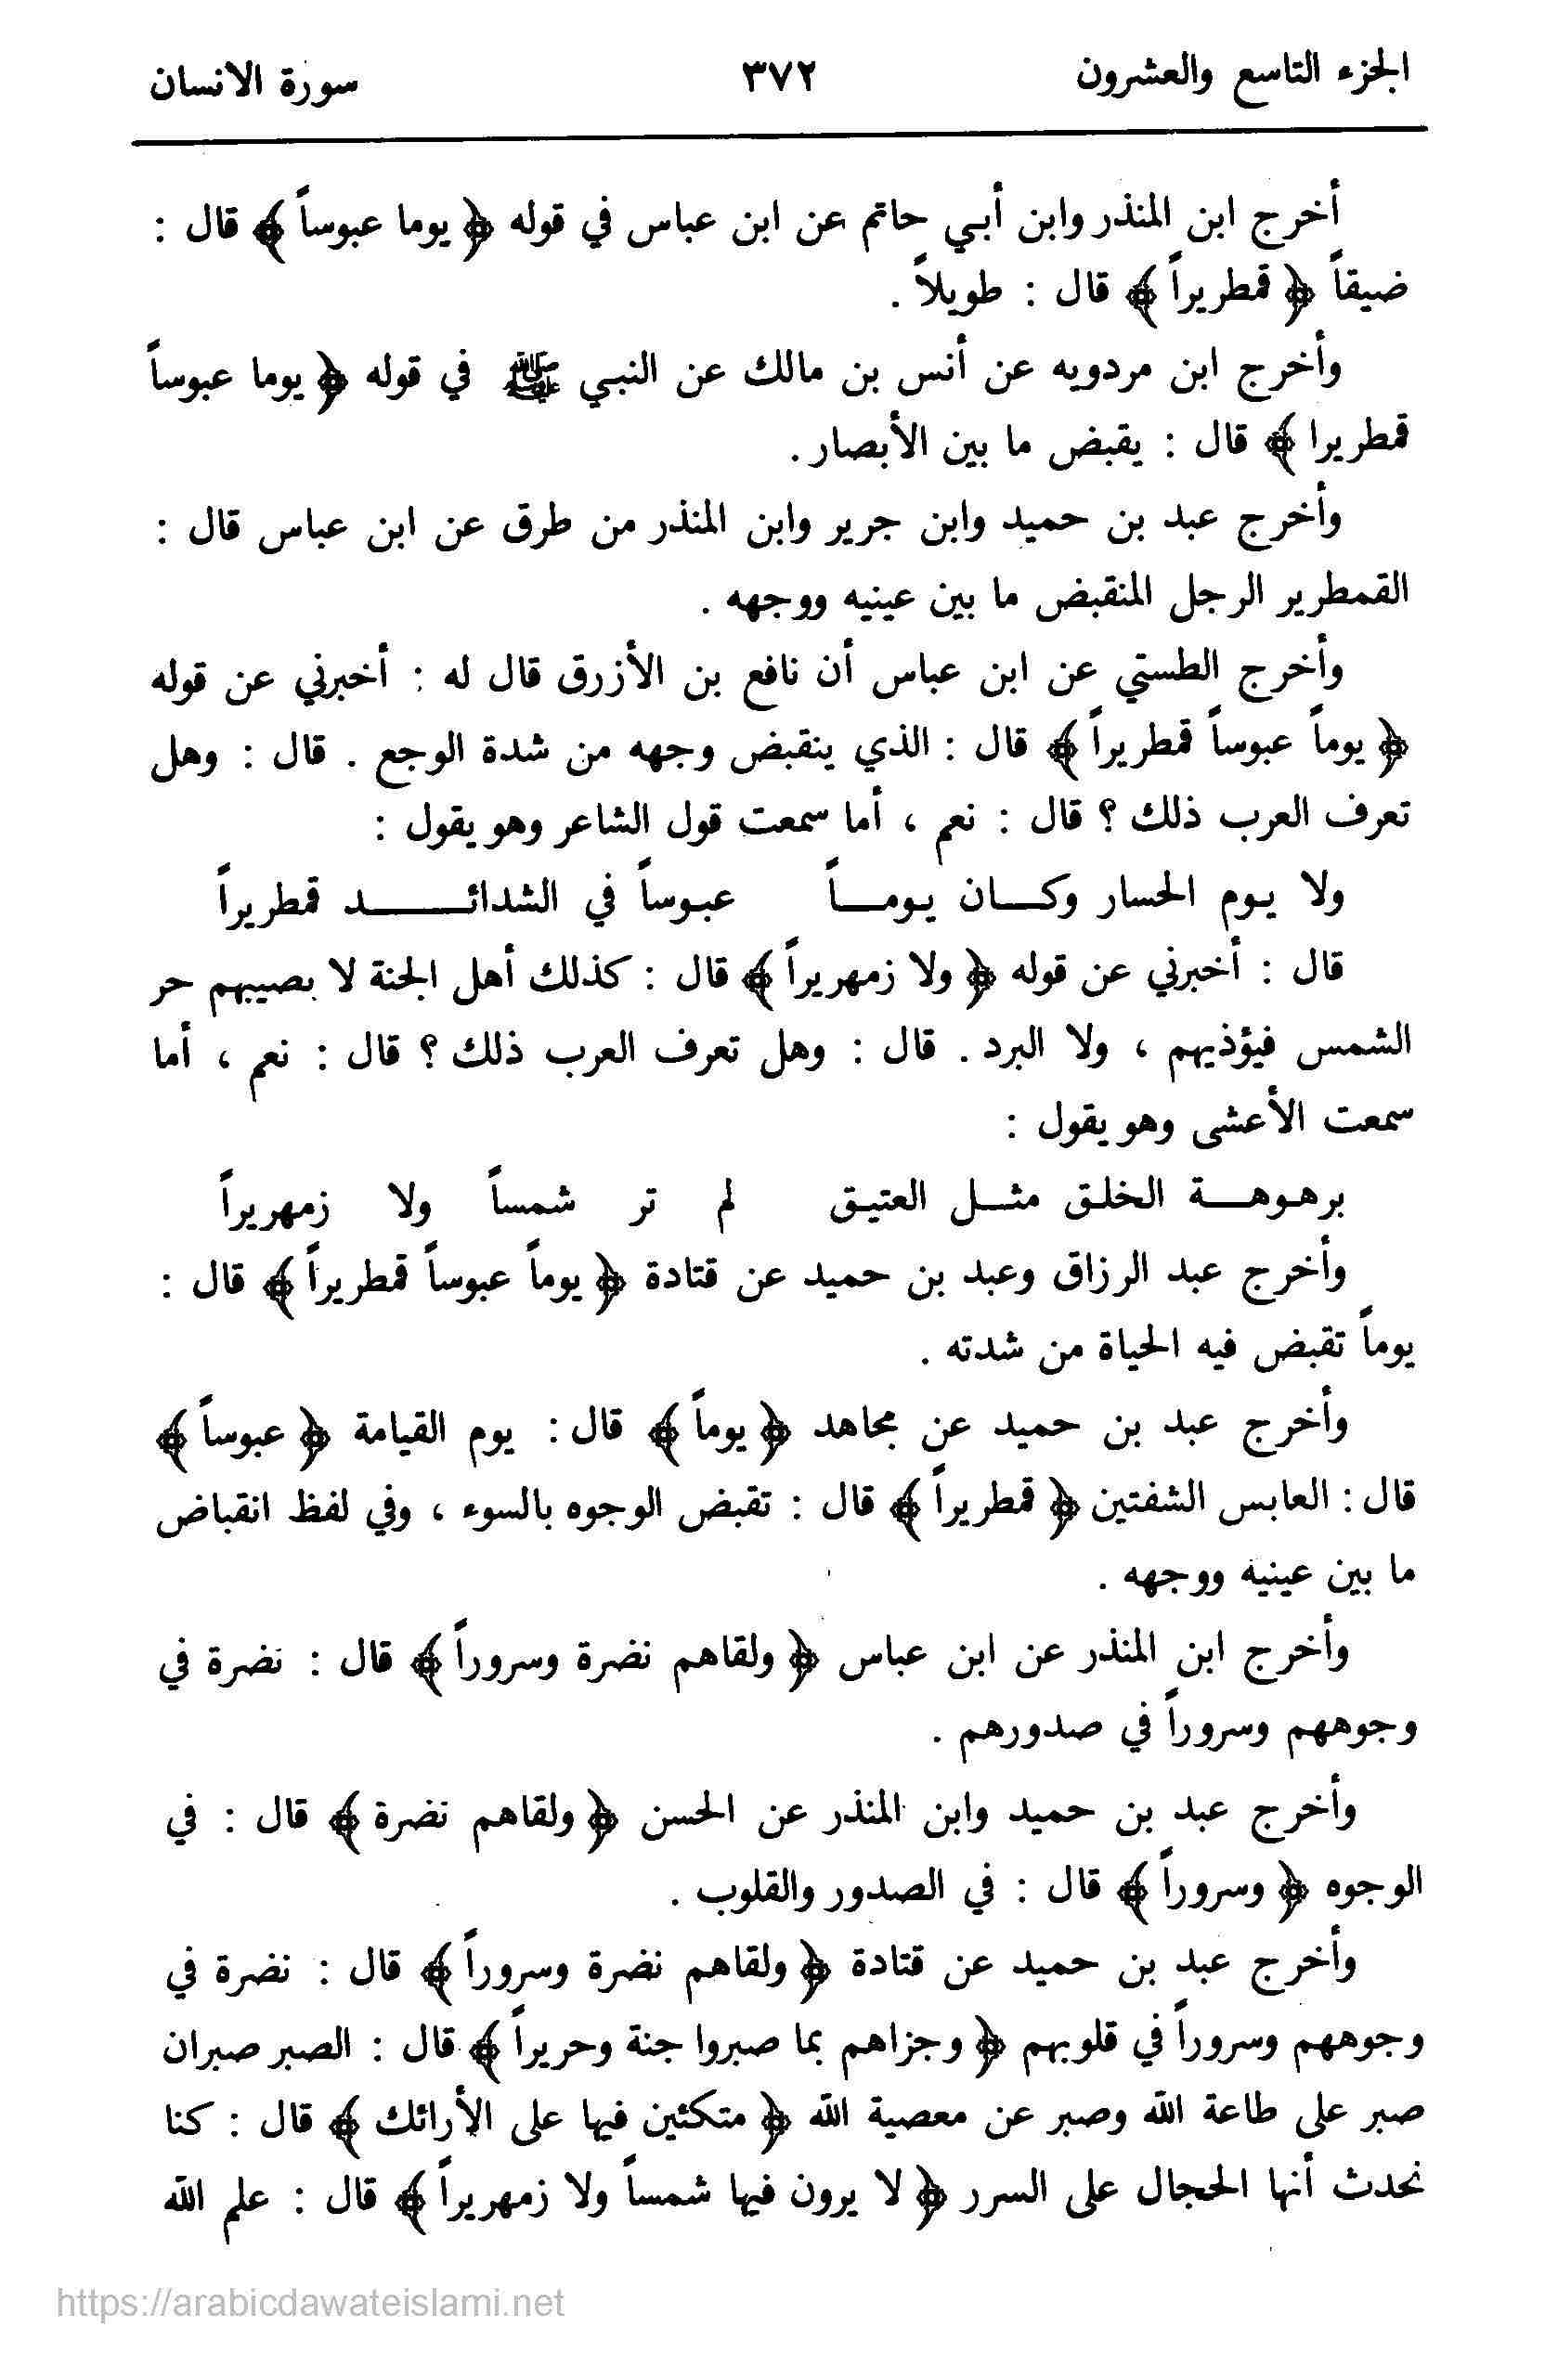 الجزء التاسع والعشرون ٣٧٢ سورة الانسان
أخرج ابن المنذر وابن أبي حاتم عن ابن عباس في قوله ﴿ يوما عبوساً ﴾ قال :
ضيقاً ﴿ قمطريراً ﴾ قال : طويلاً .
وأخرج ابن مردويه عن أنس بن مالك عن النبي ﷺ في قوله ﴿ يوما عبوساً
قمطريرا ﴾ قال : يقبض ما بين الأبصار .
وأخرج عبد بن حميد وابن جرير وابن المنذر من طرق عن ابن عباس قال :
القمطرير الرجل المنقبض ما بين عينيه ووجهه .
وأخرج الطستي عن ابن عباس أن نافع بن الأزرق قال له : أخبرني عن قوله
﴿ يوماً عبوساً قمطريراً ﴾ قال : الذي ينقبض وجهه من شدة الوجع . قال : وهل
تعرف العرب ذلك ؟ قال : نعم ، أما سمعت قول الشاعر وهو يقول :
ولا يوم الحسار وكان يوماً عبوساً في الشدائد قمطريراً
قال : أخبرني عن قوله ﴿ ولا زمهريراً ﴾ قال : كذلك أهل الجنة لا بصيبهم حر
الشمس فيؤذيهم ، ولا البرد . قال : وهل تعرف العرب ذلك ؟ قال : نعم ، أما
سمعت الأعشى وهو يقول :
برهوهة الخلق مثل العتيق لم تر شمساً ولا زمهريراً
وأخرج عبد الرزاق وعبد بن حميد عن قتادة ﴿ يوماً عبوساً قمطريراً ﴾ قال :
يوماً تقبض فيه الحياة من شدته .
وأخرج عبد بن حميد عن مجاهد ﴿ يوماً ﴾ قال : يوم القيامة ﴿ عبوساً ﴾
قال : العابس الشفتين ﴿ قمطريراً ﴾ قال : تقبض الوجوه بالسوء ، وفي لفظ انقباض
ما بين عينيه ووجهه .
وأخرج ابن المنذر عن ابن عباس ﴿ ولقاهم نضرة وسروراً ﴾ قال : نضرة في
وجوههم وسروراً في صدورهم .
وأخرج عبد بن حميد وابن المنذر عن الحسن ﴿ ولقاهم نضرة ﴾ قال : في
الوجوه ﴿ وسروراً ﴾ قال : في الصدور والقلوب .
وأخرج عبد بن حميد عن قتادة ﴿ ولقاهم نضرة وسروراً ﴾ قال : نضرة في
وجوههم وسروراً في قلوبهم ﴿ وجزاهم بما صبروا جنة وحريراً ﴾ قال : الصبر صبران
صبر على طاعة الله وصبر عن معصية الله ﴿ متكئين فيها على الأرائك ﴾ قال : كنا
نحدث أنها الحجال على السرر ﴿ لا يرون فيها شمساً ولا زمهريراً ﴾ قال : علم الله
https://arabicdawateislami.net